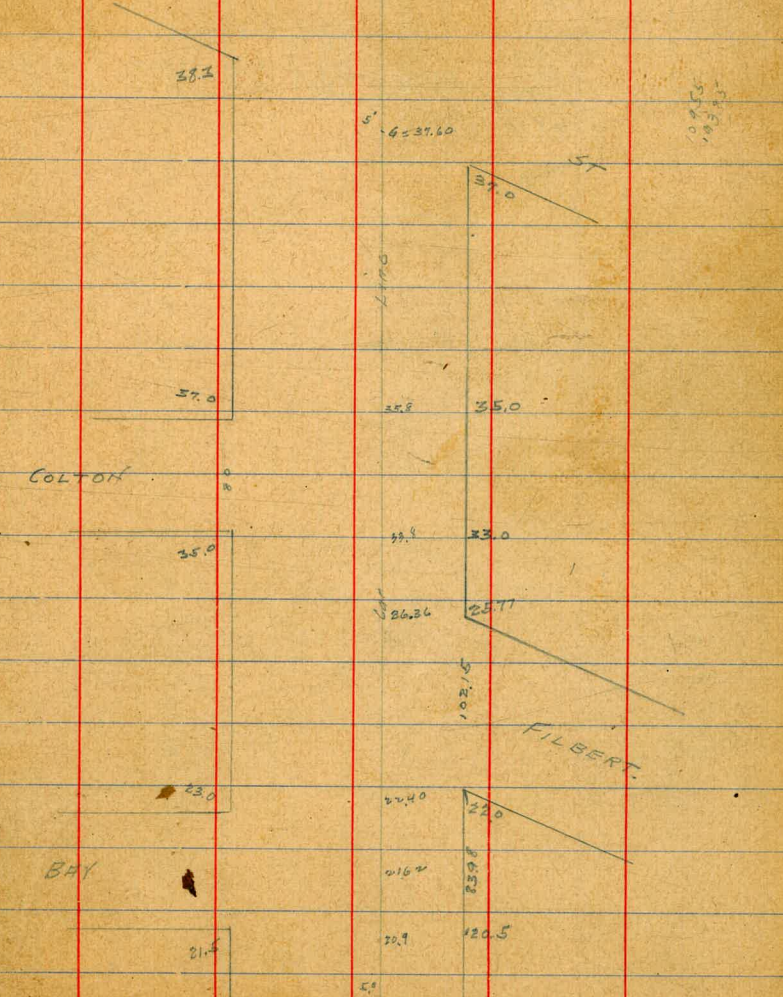 38.3
5'
G=37.60
ST
37.0
37.0
35.8
35.0
COLTON
80
35.0
33.8
33.0
26.36
25.77
102.15
FILBERT.
23.0
22.40
22.0
BAY
2162
8398
21.5
20.9
20.5